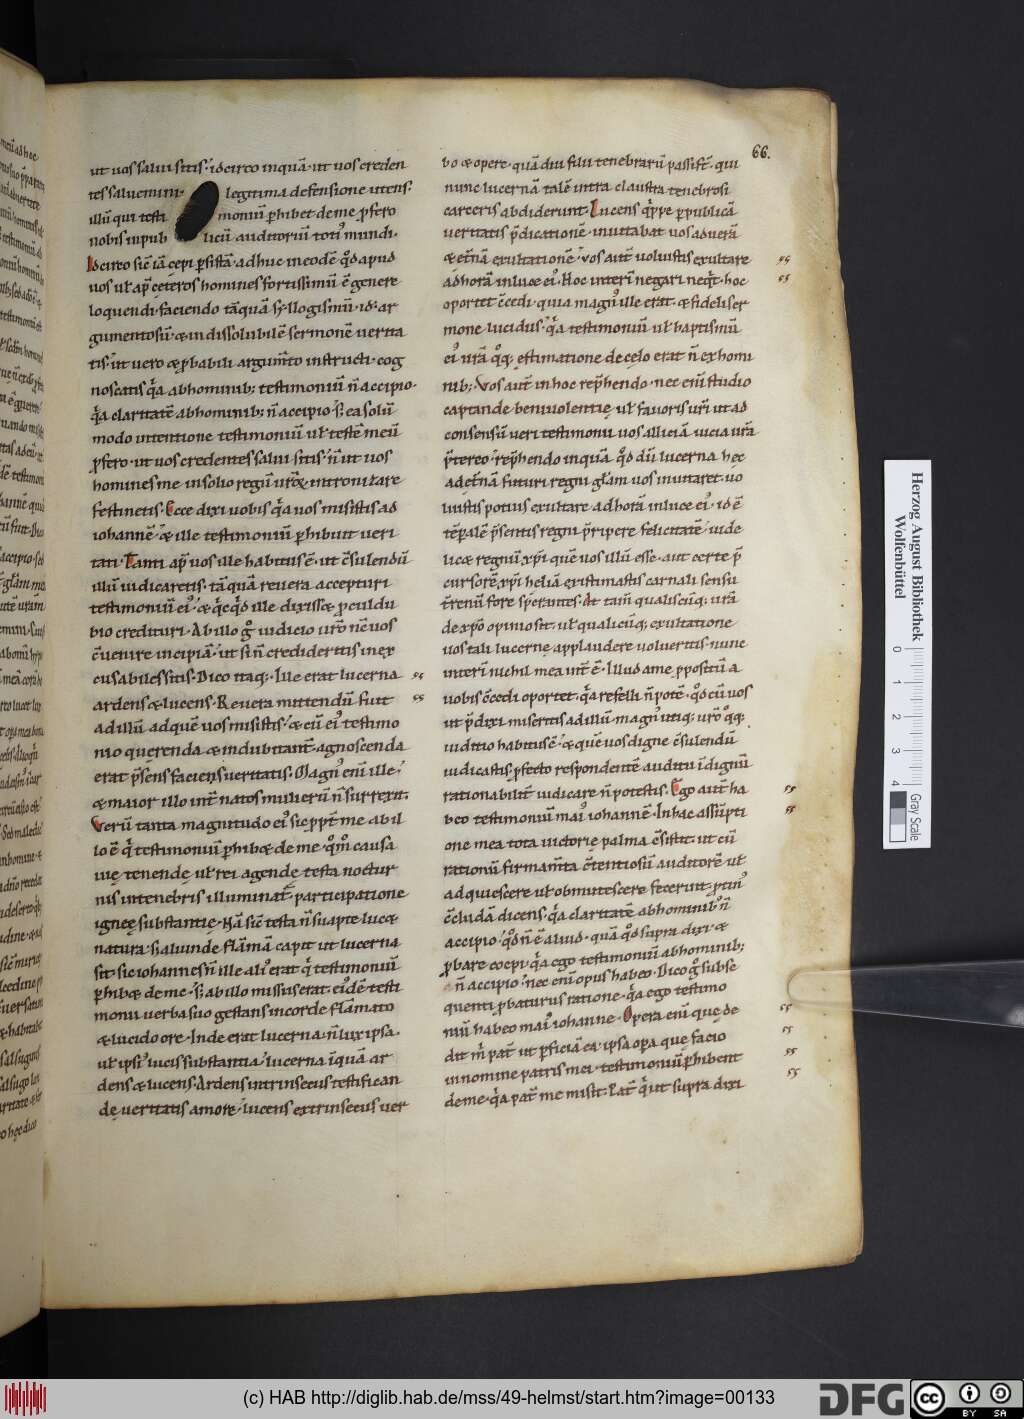 66.
ut uos salui sitis· idcirco inquā· ut uos creden
tes saluemini· legitima defensione utens·
illū qui testi moniū phibet de me pfero
nobis in pub licū auditoriū toti' mundi·
Idcirco sic iā cepi psistā· adhuc in eodē qd apud
uos ul apᷓ ceteros homines fortissimū ē genere
loquendi· faciendo tāquā syllogismū· id ar
gumentosū· & indissolubilē sermonē uerita
tis· ut uero & pbabili argumto instructi· cog
noscatis qa ab hominib; testimoniū n̄ accipio·
qa claritatē ab hominib; n̄ accipio· s; ea solū
modo intentione testimoniū ul testē meū
pfero· ut uos credentes salui sitis· n̄ ut uos
homines me in solio regni urox intronizare
festinetis· Ecce dixi uobis qa uos misistis ad
iohannē· & ille testimoniū phibuit ueri
tati· Tanti apᷓ uos ille habitus ē· ut c̄sulendū
illū iudicaretis· tāquā reuera accepturi
testimoniū ei'· & qcqd ille dixiss& pculdu
bio credituri· Ab illo g iudicio uro ne uos
c̄uenire incipiā· ut si n̄ credideritis inex
cusabiles sitis· Dico itaq; Ille erat lucerna
ardens & lucens· Reuera mittendū fuit
ad illū ad quē uos misistis· & cū ei' testimo
nio querenda & indubitant agnoscenda
erat psens faciens ueritatis· Magn' eni ille·
& maior illo int natos mulierū n̄ surrexit·
Verū tanta magnitudo ei' sic ppt me ab il
lo ē q testimoniū phib& de me· qm causa
uię tenendę ul rei agendę testa noctur
nis in tenebris illuminat· participatione
ignee substantię· Nā sic testa n̄ suapte luc&
natura· s; aliunde flāmā capit ut lucerna
sit· sic iohannes n̄ ille ali' erat q testimoniū
phib& de me· s; ab illo missus erat· ei'dē testi
monii uerba suo gestans in corde flāmato
& lucido ore· Inde erat lucerna· n̄ lux ipsa·
ul ipsi' lucis substantia· lucerna inquā ar
dens & lucens· Ardens intrinsecus testifican
dę ueritatis amore· lucens extrinsecus uer
bo & opere· quā diu filii tenebrarū passi st· qui
nunc lucernā talē intra claustra tenebrosi
carceris abdiderunt· Lucens qppe p publicā
ueritatis pdicationē· inuitabat uos ad uerā
& etnā exultationē· uos aut uoluistis exultare
ad horā in luce ei'· Hoc interi negari neqt· hoc
oportet c̄cedi· quia magn' ille erat· & fideli ser
mone lucidus· qa testimoniū ul baptismū
ei' urā qq; estimatione de celo erat n̄ ex homi
nib; Vos aut in hoc rephendo· nec eni studio
captande beniuolentię ul fauoris uri ut ad
consensū ueri testimonii uos alliciā uicia urā
ptereo· rephendo inquā qd dū lucerna hec
ad etnā futuri regni glam uos inuitaret· uo
luistis potius exultare ad horā in luce ei'· id ē
teporalē psentis regni pripere felicitatē· uide
lic& regnū xpi quē uos illū esse· aut certe p
cursorē xpi heliā existimastis carnali sensu
trenū fore sperantes· At tam qualiscūq; urā
de xpo opinio sit· ul qualicūq; exultatione
uos tali lucerne applaudere uolueritis· nunc
interi nichil mea int ē· Illud a me ppositū a
uobis c̄cedi oportet· qa refelli n̄ potē· qd cū uos
ut pdixi miseritis ad illū magn' utiq; uro qq;
iuditio habitus ē· & quē uos digne c̄sulendū
iudicastis· pfecto respondentē auditu indignū
rationabilit iudicare n̄ potestis· Ego aut ha
beo testimoniū mai' iohanne· In hac assūpti
one mea tota uictorię palma c̄sistit· ut cū
rationū firmamta c̄tentiosū auditorē ul
adquiescere ul obmutescere fecerint· ptin'
c̄cludā dicens· qa claritatē ab hominib' n̄
accipio· qd n̄ ē aliud· quā qd supra dixi· &
pbare coepi· qa ego testimoniū ab hominib;
n̄ accipio· nec eni opus habeo· Dico g subse
quenti pbaturus ratione· qa ego testimo
niū habeo mai' iohanne· Opera eni que de
dit m pat ut pficiā ea· ipsa opa que facio
in nomine patris mei· testimoniū phibent
de me· qa pat me misit· Pat q ut supra dixi
Herzog August Bibliothek
Wolfenbüttel
0 1 2 3 4
Gray Scale
(c) HAB http://diglib.hab.de/mss/49-helmst/start.htm?image=00133
DFG
CC BY SA